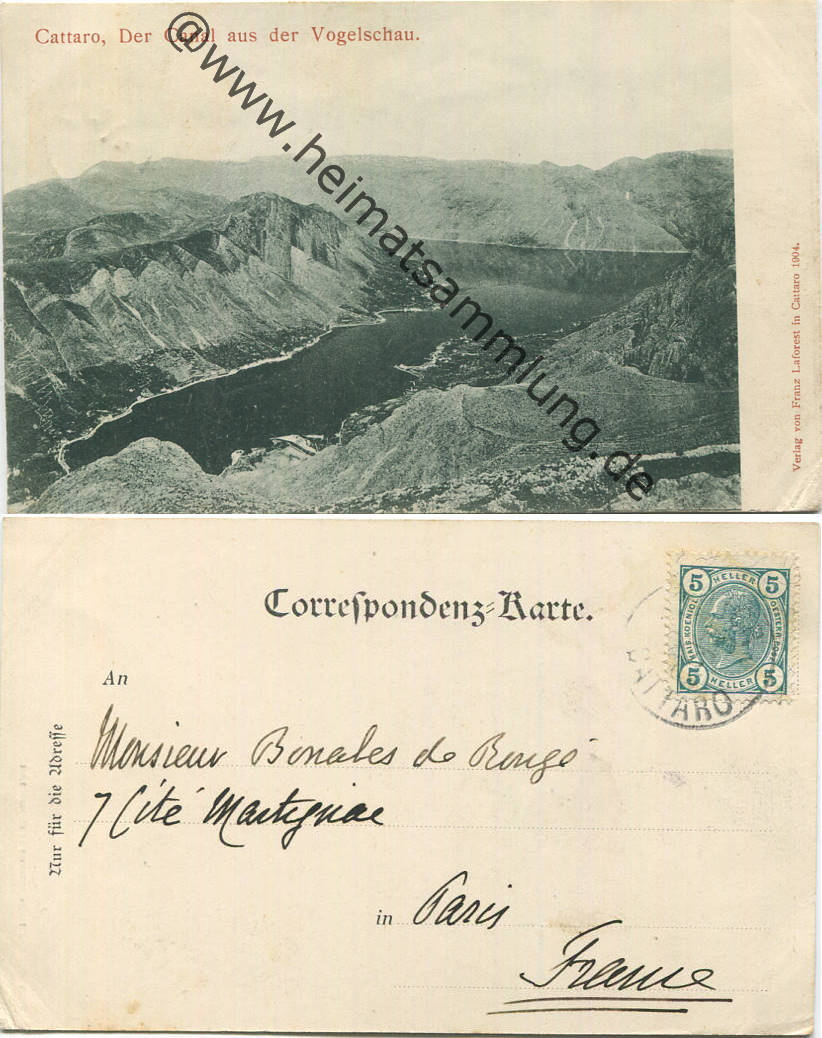 Cattaro, Der Canal aus der Vogelschau.
@www.heimatsammlung.de
Verlag von Franz Laforest in Cattaro 1904.
Correſpondenz-Karte.
5 HELLER 5
KAIS. KOENIGL. OESTERR. POST
5 HELLER 5
CATTARO
An
Nur für die Adreſſe
Monsieur Bonables de Rougé
7 Cité Martignac
in Paris
France